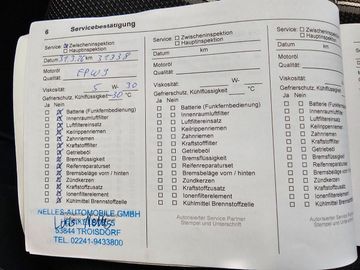 6 Servicebestätigung
Service: Zwischeninspektion
Hauptinspektion
Datum 31.3.26 km 31338
Motoröl
Qualität:
Viskosität: 5 W- 30
Gefrierschutz, Kühlflüssigkeit -30 °C
Ja Nein
Batterie (Funkfernbedienung)
Innenraumluftfilter
Luftfiltereinsatz
Keilrippenriemen
Zahnriemen
Kraftstofffilter
Getriebeöl
Bremsflüssigkeit
Reifenreparaturset
Bremsbeläge vorn / hinten
Zündkerzen
Kraftstoffzusatz
Ionenfilterelement
Kühlmittel Brennstoffzelle
NELLES-AUTOMOBILE GMBH
53844 TROISDORF
TEL. 02241-9433800
Service: Zwischeninspektion
Hauptinspektion
Datum km
Motoröl
Qualität:
Viskosität: W-
Gefrierschutz, Kühlflüssigkeit °C
Ja Nein
Batterie (Funkfernbedienung)
Innenraumluftfilter
Luftfiltereinsatz
Keilrippenriemen
Zahnriemen
Kraftstofffilter
Getriebeöl
Bremsflüssigkeit
Reifenreparaturset
Bremsbeläge vorn / hinten
Zündkerzen
Kraftstoffzusatz
Ionenfilterelement
Kühlmittel Brennstoffzelle
Autorisierter Service Partner
Stempel und Unterschrift
Service: Zwischeninspektion
Hauptinspektion
Datum km
Motoröl
Qualität:
Viskosität:
Gefrierschutz, Kühlflüssigkeit
Ja Nein
Batterie (Funkfernbedienung)
Innenraumluftfilter
Luftfiltereinsatz
Keilrippenriemen
Zahnriemen
Kraftstofffilter
Getriebeöl
Bremsflüssigkeit
Reifenreparaturset
Bremsbeläge vorn / hinten
Zündkerzen
Kraftstoffzusatz
Ionenfilterelement
Kühlmittel Brennstoffzelle
Autorisierter Service Partner
Stempel und Unterschrift